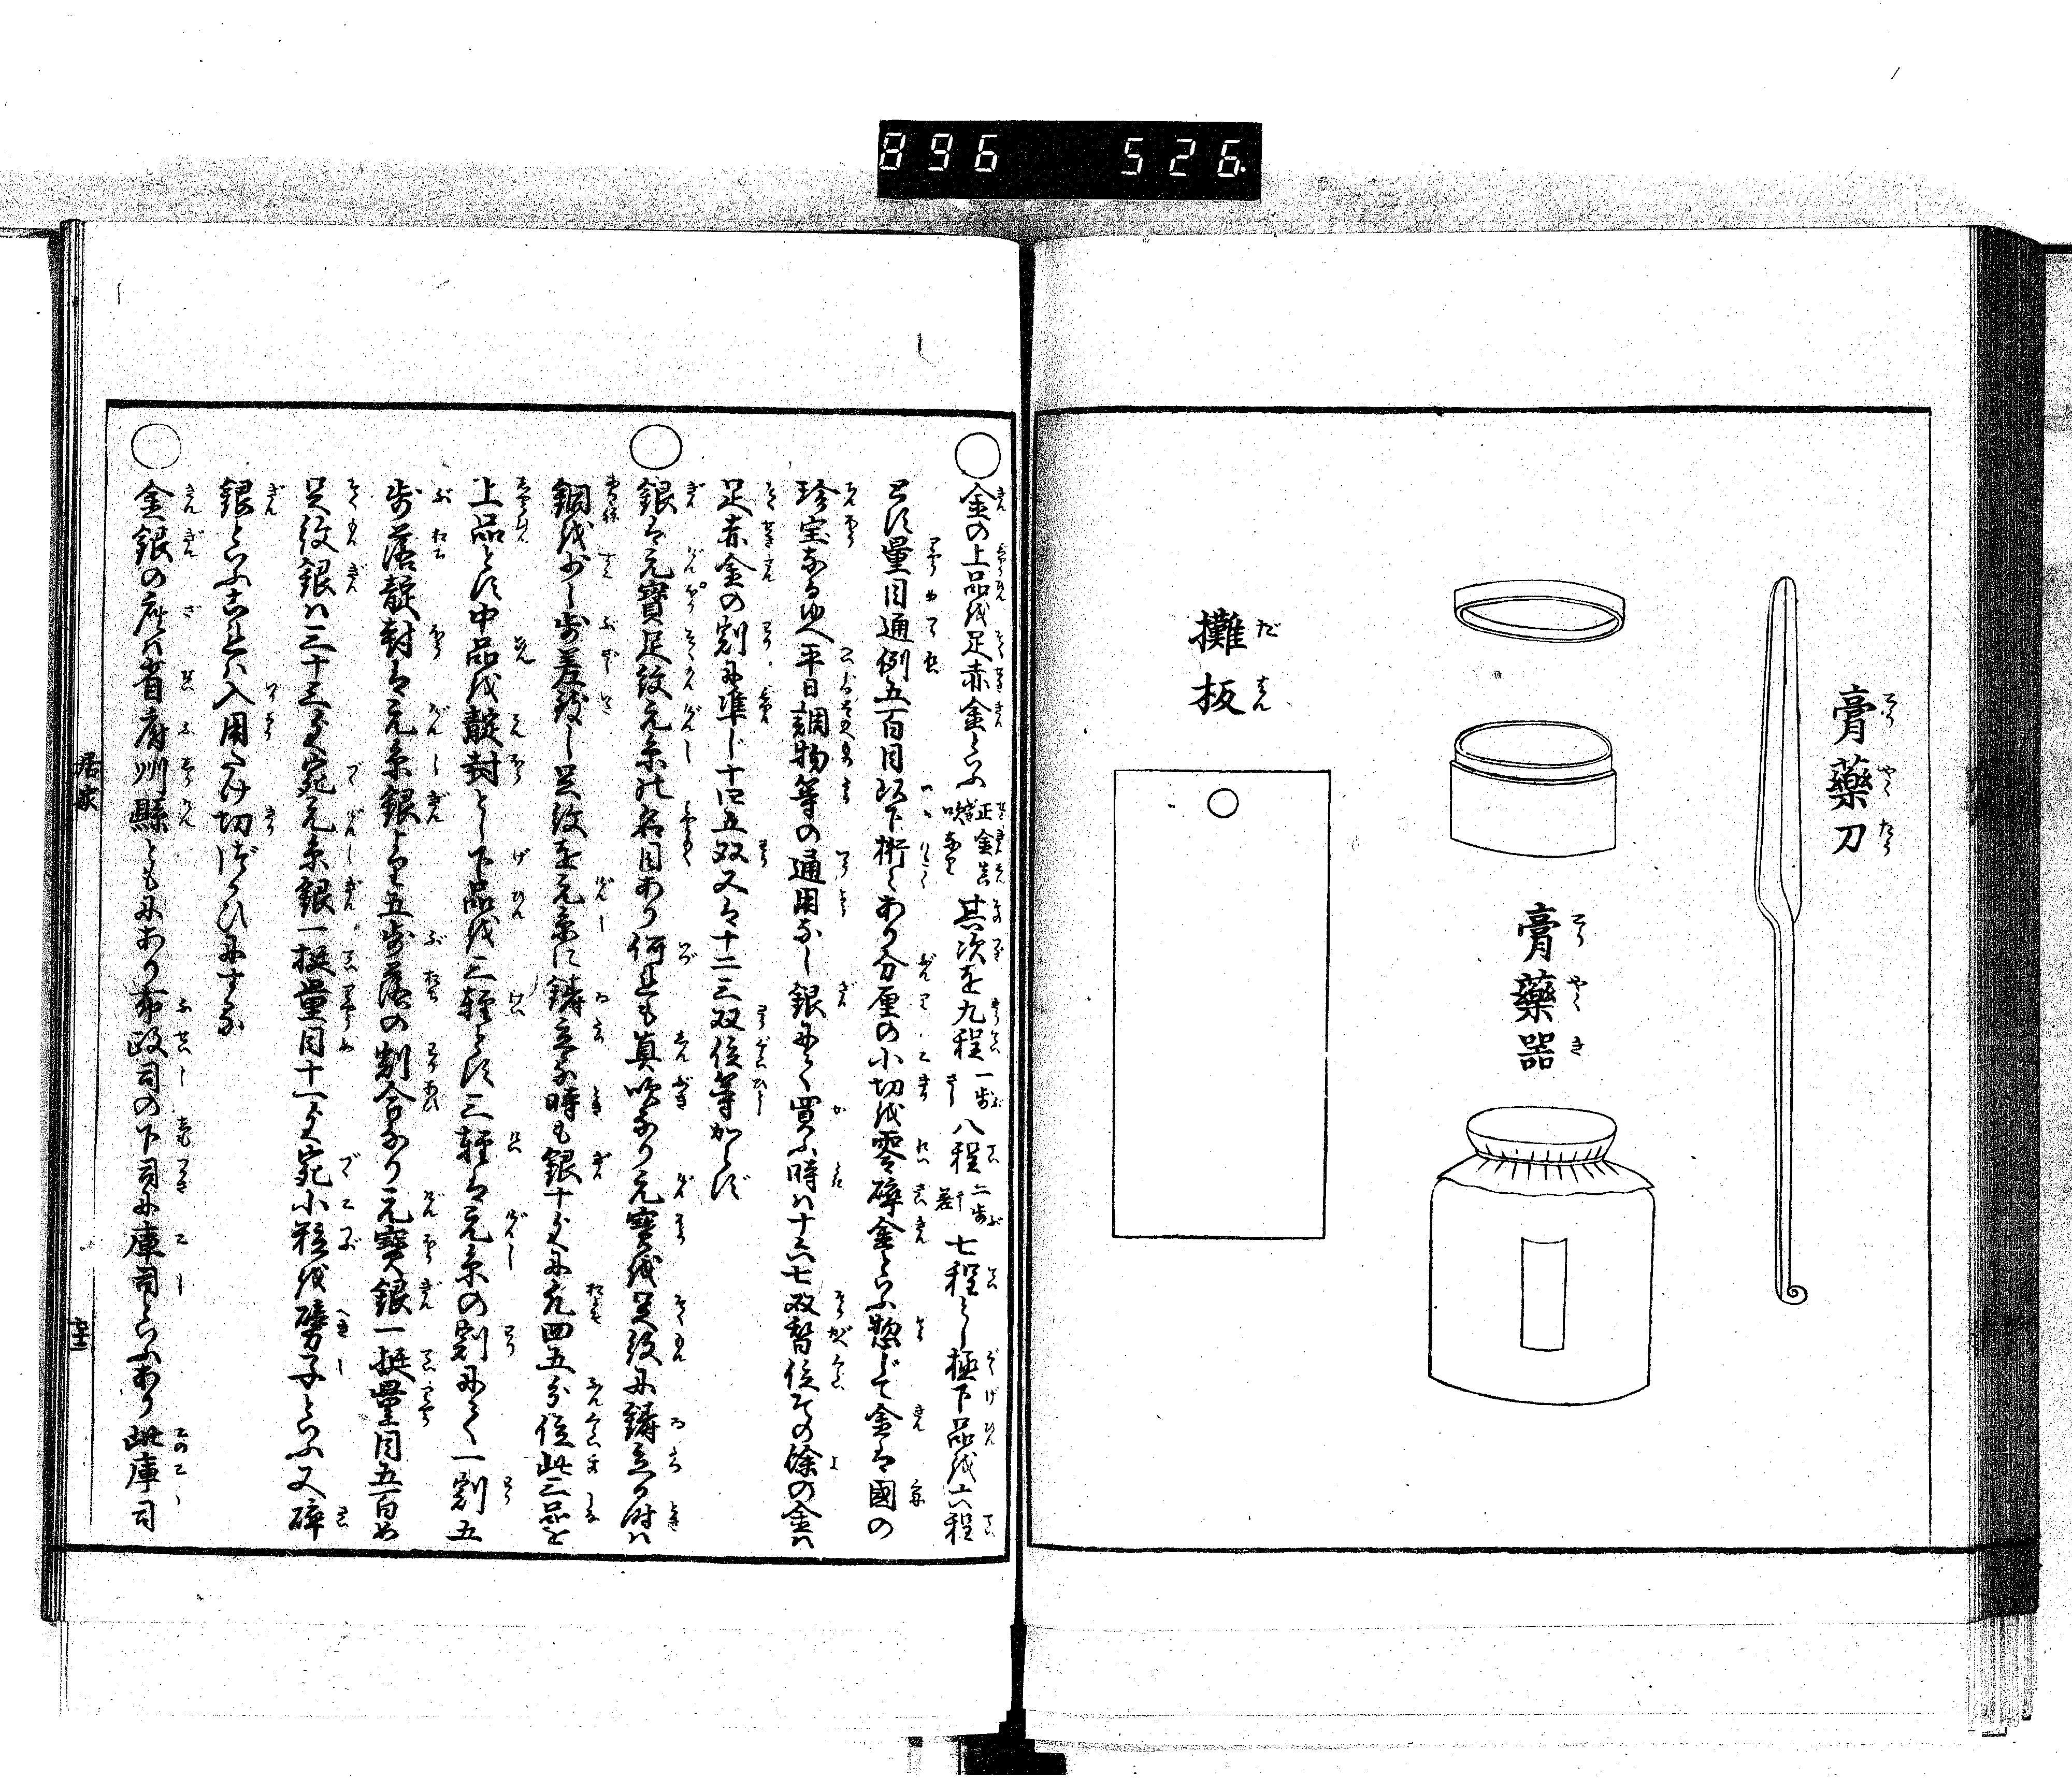 896 526
膏藥刀
膏藥器
攤板
金の上品を足赤金といふ 其次を九程 八程 七程とし極下品を六程
とす量目通例五百目以下術〻あり分厘の小切を零碎金といふ惣じて金は國の
珍宝なるゆへ平日調物等の通用なし銀にて買ふ時は十六七双替位その餘の金は
足赤金の割に準じ十四五双又は十二三双位等からず
銀は元寶足紋元糸の名目あり何も真吹なり元寶を足紋に鑄立る時は
銅を少し歩差致し足紋を元糸に鑄立る時も銀十匁に凡四五分位此三品を
上品とす中品を靛封とし下品を三輕とす三輕は元糸の割にて一割五
歩落靛封は元糸銀より五歩落の割合なり元寶銀一挺量目五百目
足紋銀は三十三匁宛元糸銀一挺量目十一匁宛小粒を子といふ又碎
銀といふ古は入用だけ切づかひにする
金銀の座は省府州縣ともにあり布政司の下司に庫司といふあり此庫司
居家